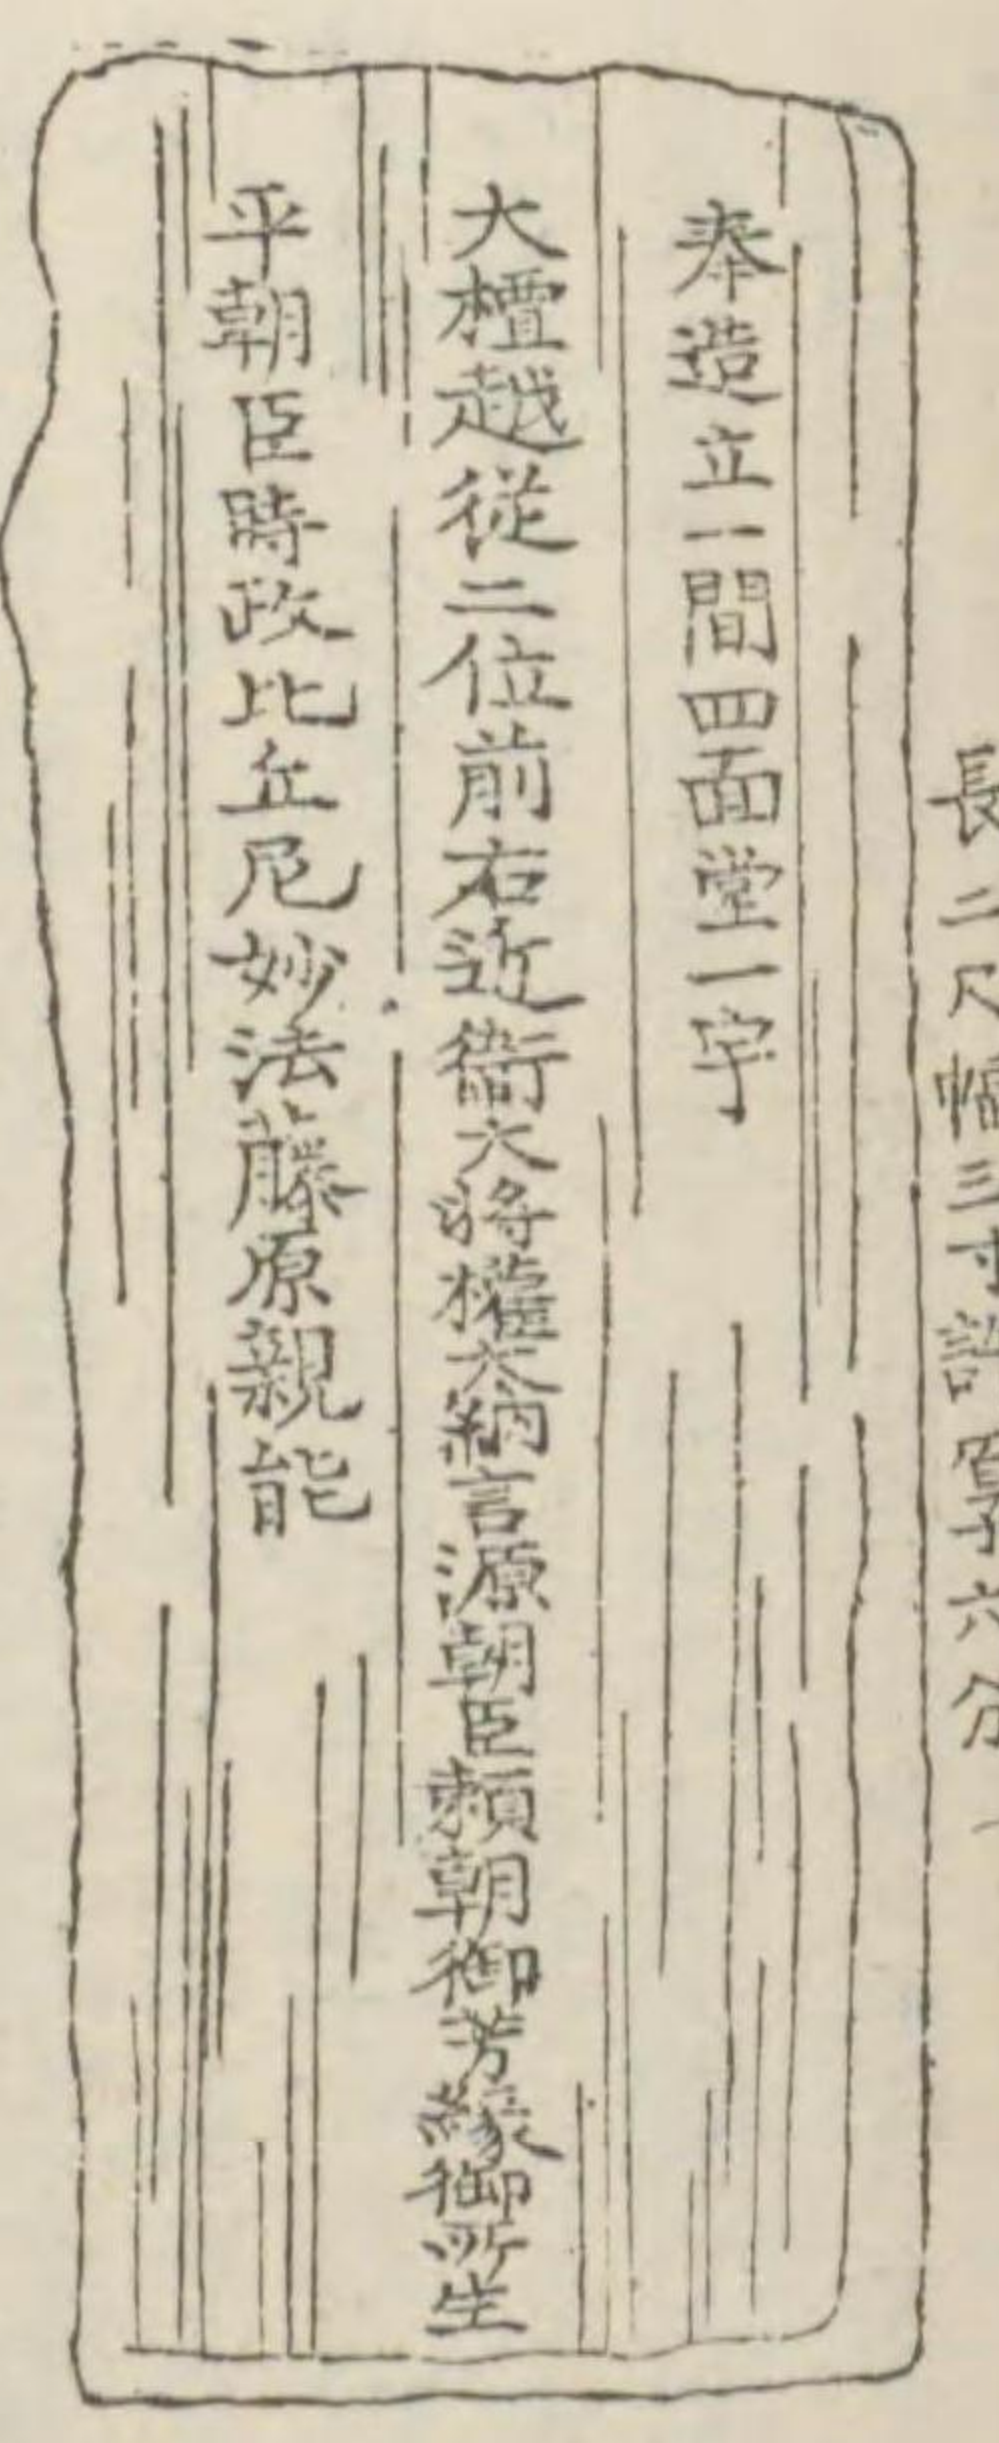 長二尺幅三寸許厚六分
奉造立一間四面堂一宇
大檀越從二位前右近衛大將權大納言源朝臣頼朝御芳縁御所生
平朝臣時政比丘尼妙法藤原親能